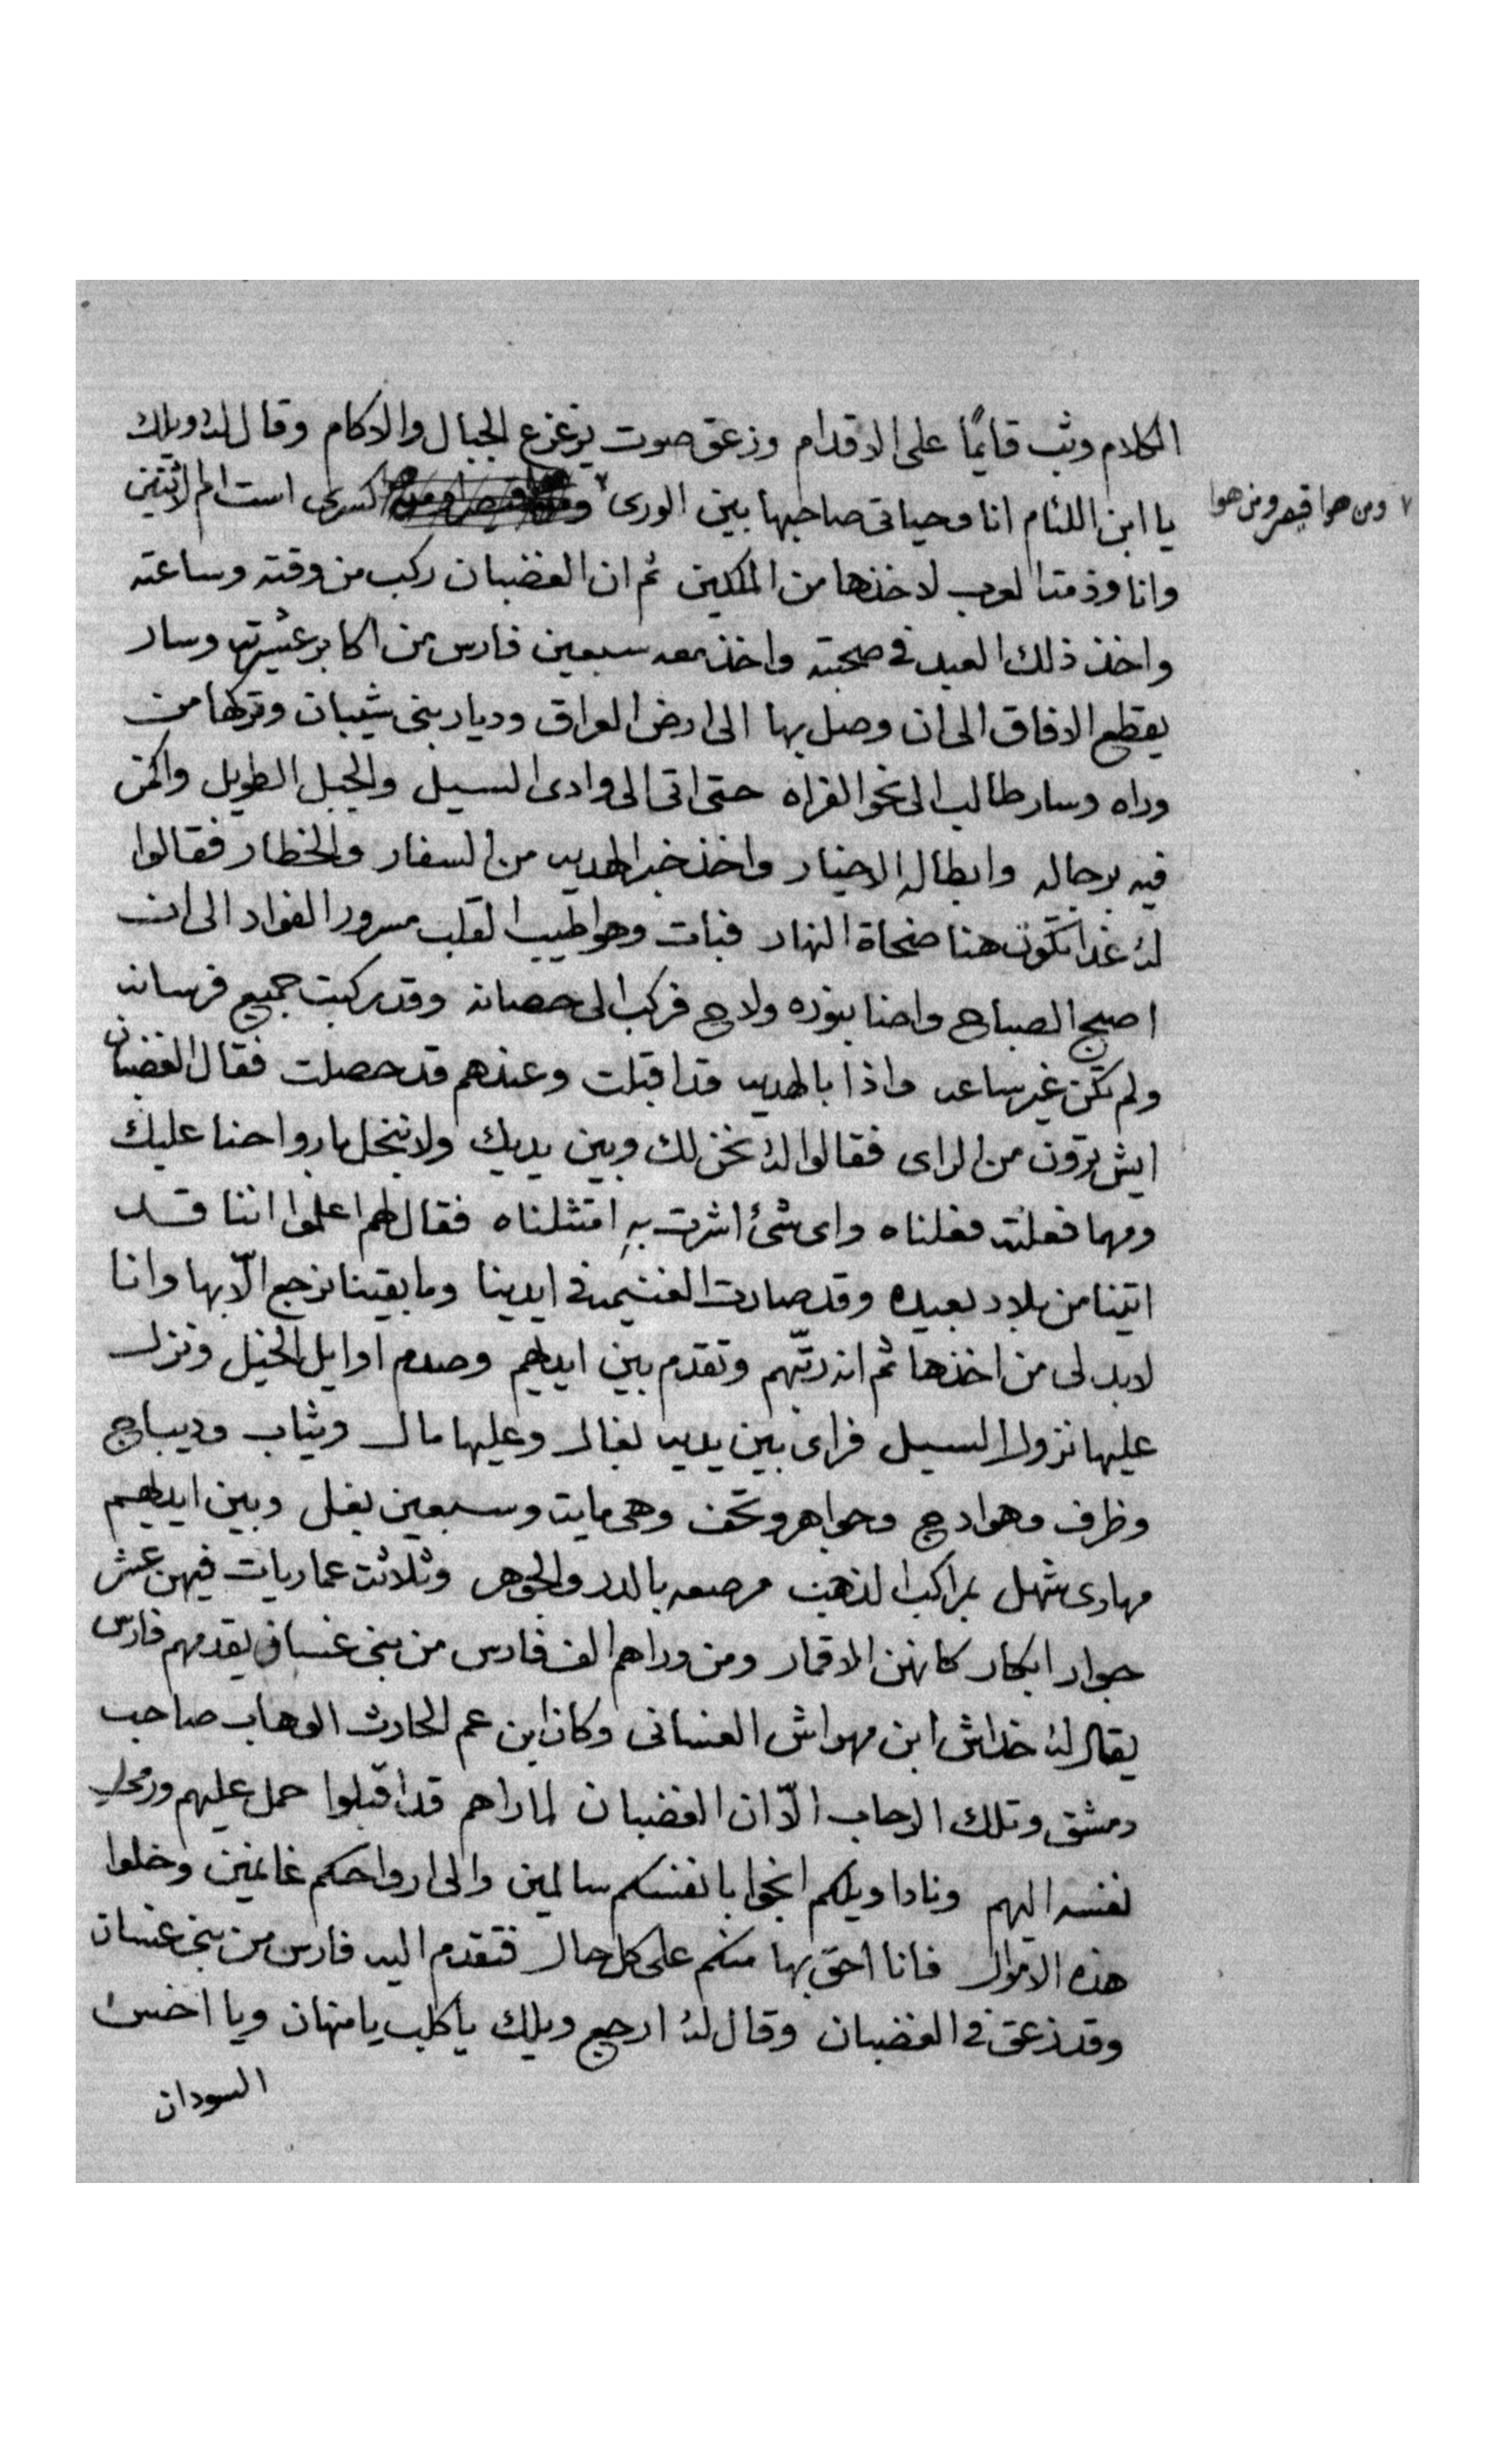 الكلام وثب قايمًا على الاقدام وزعق صوت يزعزع الجبال والاكام وقال لهُ ويلك
يا ابن اللئام انا وحياتي صاحبها بين الورى ٧ كسرى است ام الاثنين
٧ ومن هوا قيصر ومن هوا
وانا وذمة العرب لاخذها من الملكين ثم ان الغضبان ركب من وقته وساعته
واخذ ذلك العبد في صحبته واخذ معه سبعين فارس من اكابر عشيرته وسار
يقطع الافاق الى ان وصل بها الى ارض العراق وديار بني شيبان وتركها من
وراه وسار طالب الى نحو الفراه حتى اتى الى وادى السيل والجبل الطويل واكمن
فيه برجاله وابطاله الاخيار واخذ خبر الهديه من السفار والخطار فقالوا
لهُ غدا تكون هنا ضحاة النهار فبات وهوا طيب القلب مسرور الفواد الى ان
اصبح الصباح واضا بنوره ولاح فركب الى حصانه وقد ركبت جميع فرسانه
ولم تكن غير ساعه واذا بالهديه قد اقبلت وعندهم قد حصلت فقال الغضبان
ايش ترون من الراى فقالوا لهُ نحن لك وبين يديك ولا نبخل بارواحنا عليك
ومهما فعلته فعلناه واى شئ اشرت بهِ امتثلناه فقال لهم اعلموا اننا قد
اتينا من بلاد بعيده وقد صارت الغنيمه في ايدينا وما بقينا نرجع الّا بها وانا
لابد لى من اخذها ثم انه رتّبهم وتقدم بين ايديهم وصدم اوايل الخيل ونزل
عليها نزول السيل فراى بين يديه بغال وعليها مال وثياب وديباج
وظرف وهوادج وجواهر وتحف وهى مايت وسبعين بغل وبين ايديهم
مهارى تهل بمراكب الذهب مرصعه بالدر والجوهر وثلاثت عماريات فيهن عشر
جوار ابكار كانهن الاقمار ومن وراهم الف فارس من بنى غسان يقدمهم فارس
يقال لهُ خداش ابن مهراش الغسانى وكان ابن عم الحارث الوهاب صاحب
دمشق وتلك الرحاب الّا ان الغضبان لما راهم قد اقبلوا حمل عليهم ورمى
نفسه اليهم ونادا ويلكم انجوا بانفسكم سالمين والى ارواحكم غانمين وخلوا
هذه الاموال فانا احق بها منكم على كل حال فتقدم اليه فارس من بنى غسان
وقد زعق في الغضبان وقال لهُ ارجع ويلك يا كلب يا مهان ويا اخس
السودان